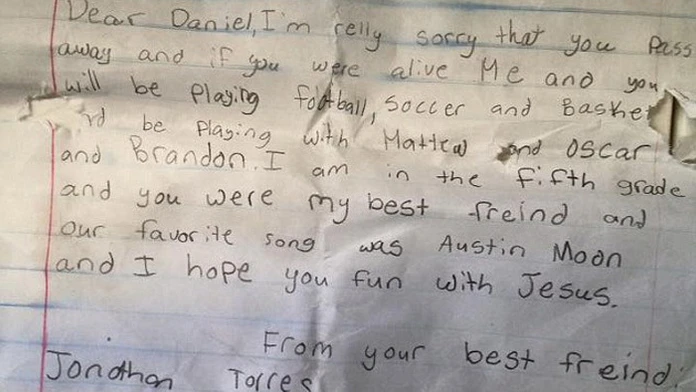 Dear Daniel, I'm relly sorry that you Pass
away and if you were alive Me and you
will be Playing football, soccer and Basket
be Playing with Mattew and Oscar
and Brandon. I am in the fifth grade
and you were my best freind and
our favorite song was Austin Moon
and I hope you fun with Jesus.
From your best freind
Jonathan Torres